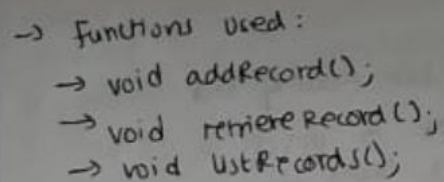 -> Functions used :
-> void addRecord();
-> void retriereRecord();
-> void listRecords();